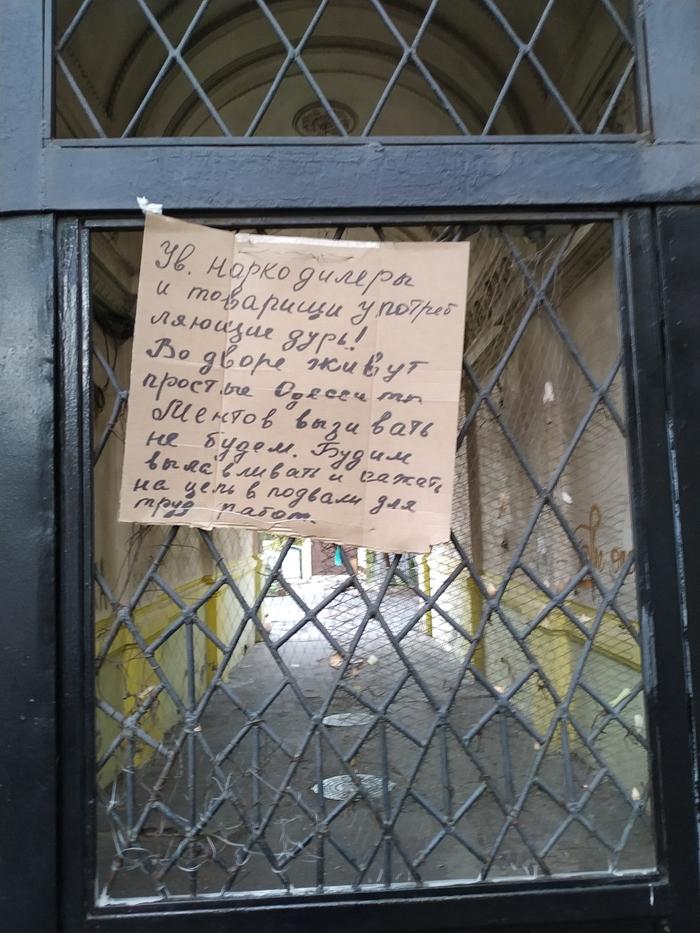 Ув. Наркодилеры
и товарищи употреб
ляющие дурь!
Во дворе живут
простые Одесситы
Ментов вызивать
не будем. Будим
вылавливать и сажать
на цепь в подвали для
труд работ.